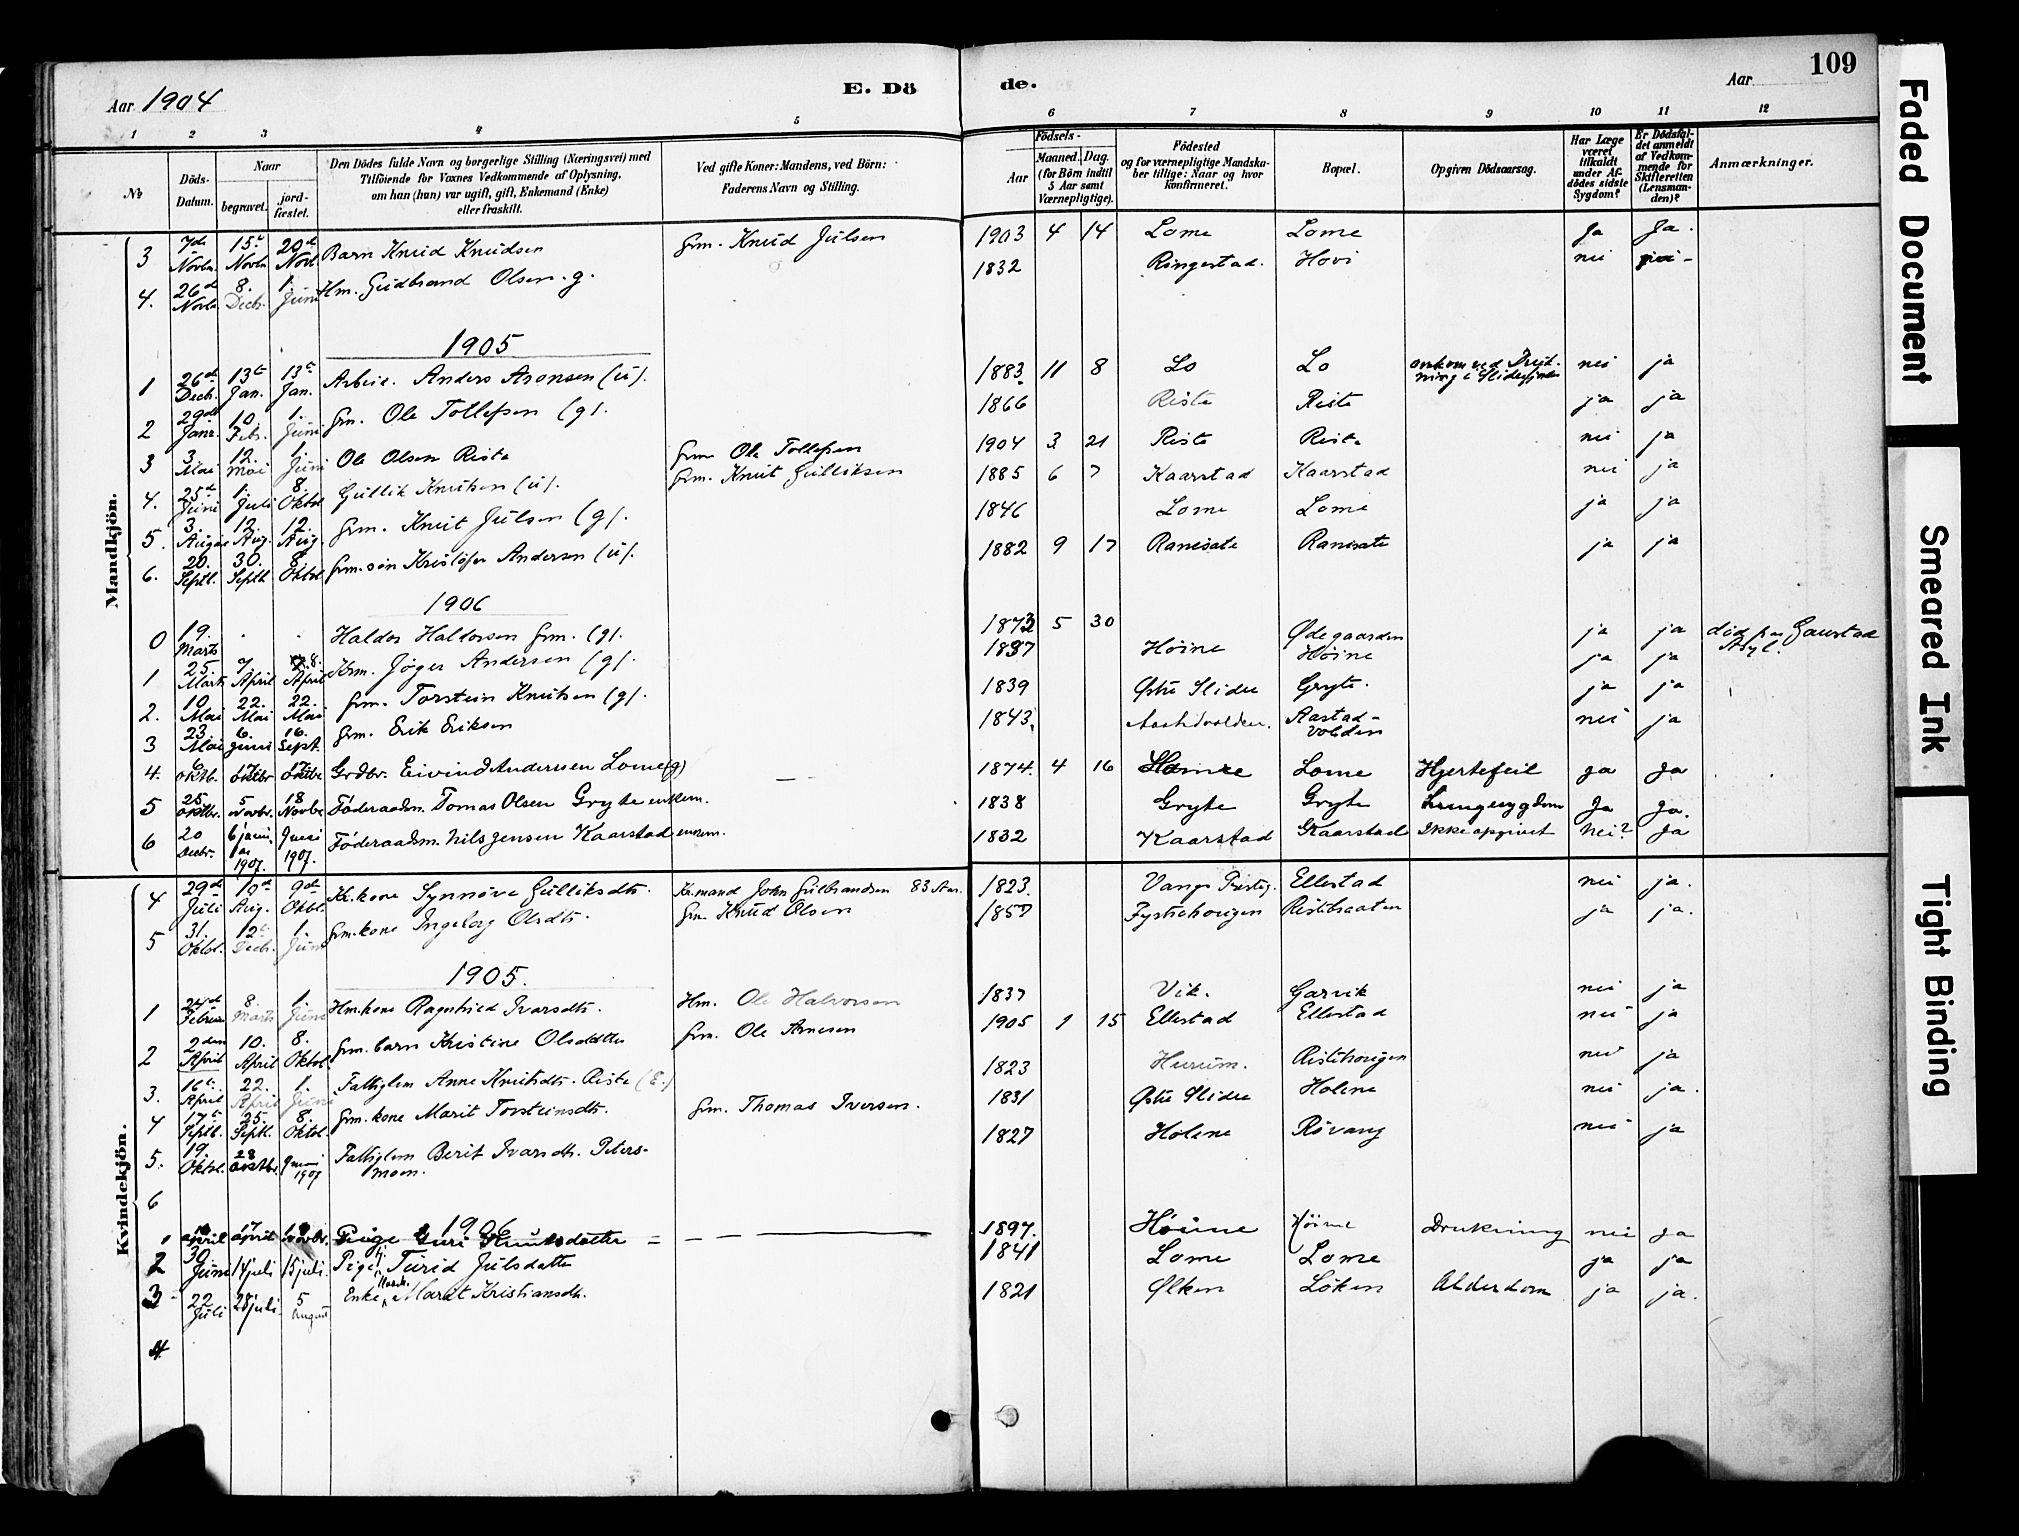 Aar 1904
E. Dö
de.
Aar
109
1 2 3 4 5 6 7 8 9 10 11 12
№
Döds-Datum.
Naar
begravet.
jord-fæstet.
Den Dödes fulde Navn og borgerlige Stilling (Næringsvei) med
Tilföiende for Voxnes Vedkommende af Oplysning,
om han (hun) var ugift, gift, Enkemand (Enke)
eller fraskilt.
Ved gifte Koner: Mandens, ved Börn:
Faderens Navn og Stilling.
Födsels-
Aar
Maaned. Dag.
(for Börn indtil
5 Aar samt
Værnepligtige).
Födested
og for værnepligtige Mandska-
ber tillige: Naar og hvor
konfirmeret.
Bopæl.
Opgiven Dödsaarsag.
Har Læge
været
tilkaldt
under Af-
dödes sidste
Sygdom?
Er Dödsfal-
det anmeldt
af Vedkom-
mende for
Skifteretten
(Lensman-
den)?
Anmærkninger.
Mandkjön.
3 7de Novbr. 15de Novbr 20de Novb Barn Knud Knudsen Grm. Knud Julsen 1903 4 14 Lome Lome Ja Ja.
4. 26d Novbr 8. Decbr. 1. Juni Hm. Gudbrand Olsen. g. 1832 Ringestad. Hovi nei
1905
1 26de Decb. 13de Jan. 13de Jan. Arbeid. Anders Aronsen (u). 1883 11 8 Lo Lo omkom ved Drukning i Slidrefjorden nei ja
2 29de Janr. 10. Febr. 1. Juni Grm. Ole Tollefsen (g). 1866 Riste Riste ja ja
3 3. Mai 12. Mai 1. Juni Ole Olsen Riste Grm Ole Tollefsen 1904 3 21 Riste Riste nei ja
4. 25d Juni 1. Juli 8. Oktbr Gullik Knutsen (u). Grm. Knut Gulliksen 1885 6 7 Kaarstad Kaarstad nei ja
5. 3. August 12. Aug. 12. Aug. Grm. Knut Julsen (g). 1846 Lome Lome ja ja
6. 20. Septb. 30. Septb 8. Oktob Grm. søn Kristofer Andersen (u). 1882 9 17 Raneisate Raneisate ja ja
1906
0 19. Marts Haldor Haldorsen Grm. (g). 1873 5 30 Ødegaarden ja ja død paa Gaustad Asyl.
1 25. Marts 7 April 8. April Hrm. Jøger Andersen (g). 1837 Høine Høine ja ja
2. 10 Mai 22. Mai 22. Mai Grm. Torstein Knutsen (g). 1839 Østre Slidre Gryte. ja ja
3 23. Mai 6. Juni 16. Sept. Grm. Erik Eriksen 1843. Aastadvolden. Aastad-volden nei ja
4. 6 oktb. 17 oktbr 17 oktbr Grdbr. Eivind Andersen Lome (g) 1874. 4 16 Lome Hjertefeil Ja Ja
5 25. oktbr. 5 Novbr. 18 Novbr Føderaadsm. Tomas Olsen Gryte enkem. 1838 Gryte Gryte Lungesygdom Ja Ja.
6 20 Decbr. 6 juni 1907. 9 juni 1907. Føderaadsm. Nils Jensen Kaarstad enkem. 1832 Kaarstad Kaarstad Ikke opgivet Nei? Ja
Kvindekjön.
4 29de Juli 19de Aug. 9de Oktb. Kr. kone Synnøve Gulliksdtr. Kr. mand John Gulbrandsen 83 Aar. 1823. Vangs Prestg. Ellestad nei ja.
5 31. Oktbr. 12te Decbr. 1. Juni Grm. kone Ingeborg Olsdtr. Grm Knud Olsen 1857 Fystrohougen Ristebraaten ja ja.
1905.
1 24de Februar 8. Marts 1. Juni Hm. kone Ragnhild Ivarsdtr. Hm. Ole Halvorsen 1837 Vik. Garvik nei ja
2 2den April 10. April 8. Oktbr. Grm. barn Kristine Olsdatter Grm. Ole Arnesen 1905 1 15 Ellestad Ellestad nei ja
3. 16de April 22. April 1. Juni Fattiglem Anne Knutsdtr. Riste (E.) 1823 Hurum. Ristehougen nei ja
4 17de Septb. 25. Septb. 8. Oktbr. Grm. kone Marit Torsteinsdtr. Grm. Thomas Iversen. 1831 Østre Slidre Holene nei ja.
5. 19. Oktbr. 28 oktbr. 9 juni 1907 Fattiglem Berit Ivarsdtr. Petersmoen. 1827 Holene Røvang nei ja
6
1906
1 april 17 april Novbr. Pige Guri Knutsdatter 1897. Høine Høine Drukning nei Ja
2 30 Juni 14 juli 15 juli. Pige Turid Julsdatter 1841 Lome Lome ja ja
3 22 Juli 28 juli 5 August Enke Marit Kristiansdtr. 1821 Ølken Løken Alderdom ja ja.
4.
Faded Document
Smeared Ink
Tight Binding